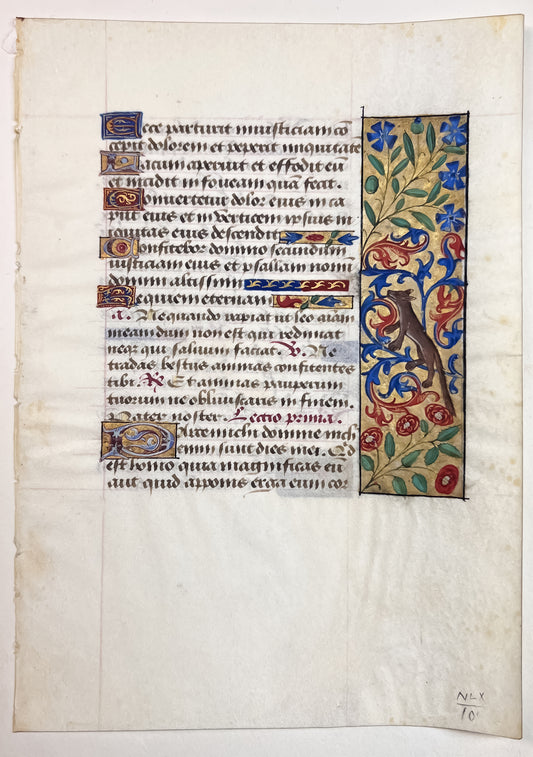 Ecce parturit iniusticiam cō
cepit dolorem et peperit iniquitatē
Lacum aperuit et effodit eū
et incidit in foueam quā fecit.
Conuertetur dolor eius in ca
put eius et in verticem ipsius in
iquitas eius descendit
Confitebor domino secundum
iusticiam eius et psallam nomi
domini altissimi
Requiem eternam
A. Nequando rapiat ut leo aīam
meam dum non est qui redimat
neqꝫ qui saluum faciat. V. Ne
tradas bestiis animas confitentes
tibi. R. Et animas pauperum
tuorum ne obliuiscaris in finem.
Pater noster. Lectio prima.
Parce michi domine nich
enim sunt dies mei. Qd
est homo quia magnificas eū
aut quid apponis erga eum cor
NLX
10